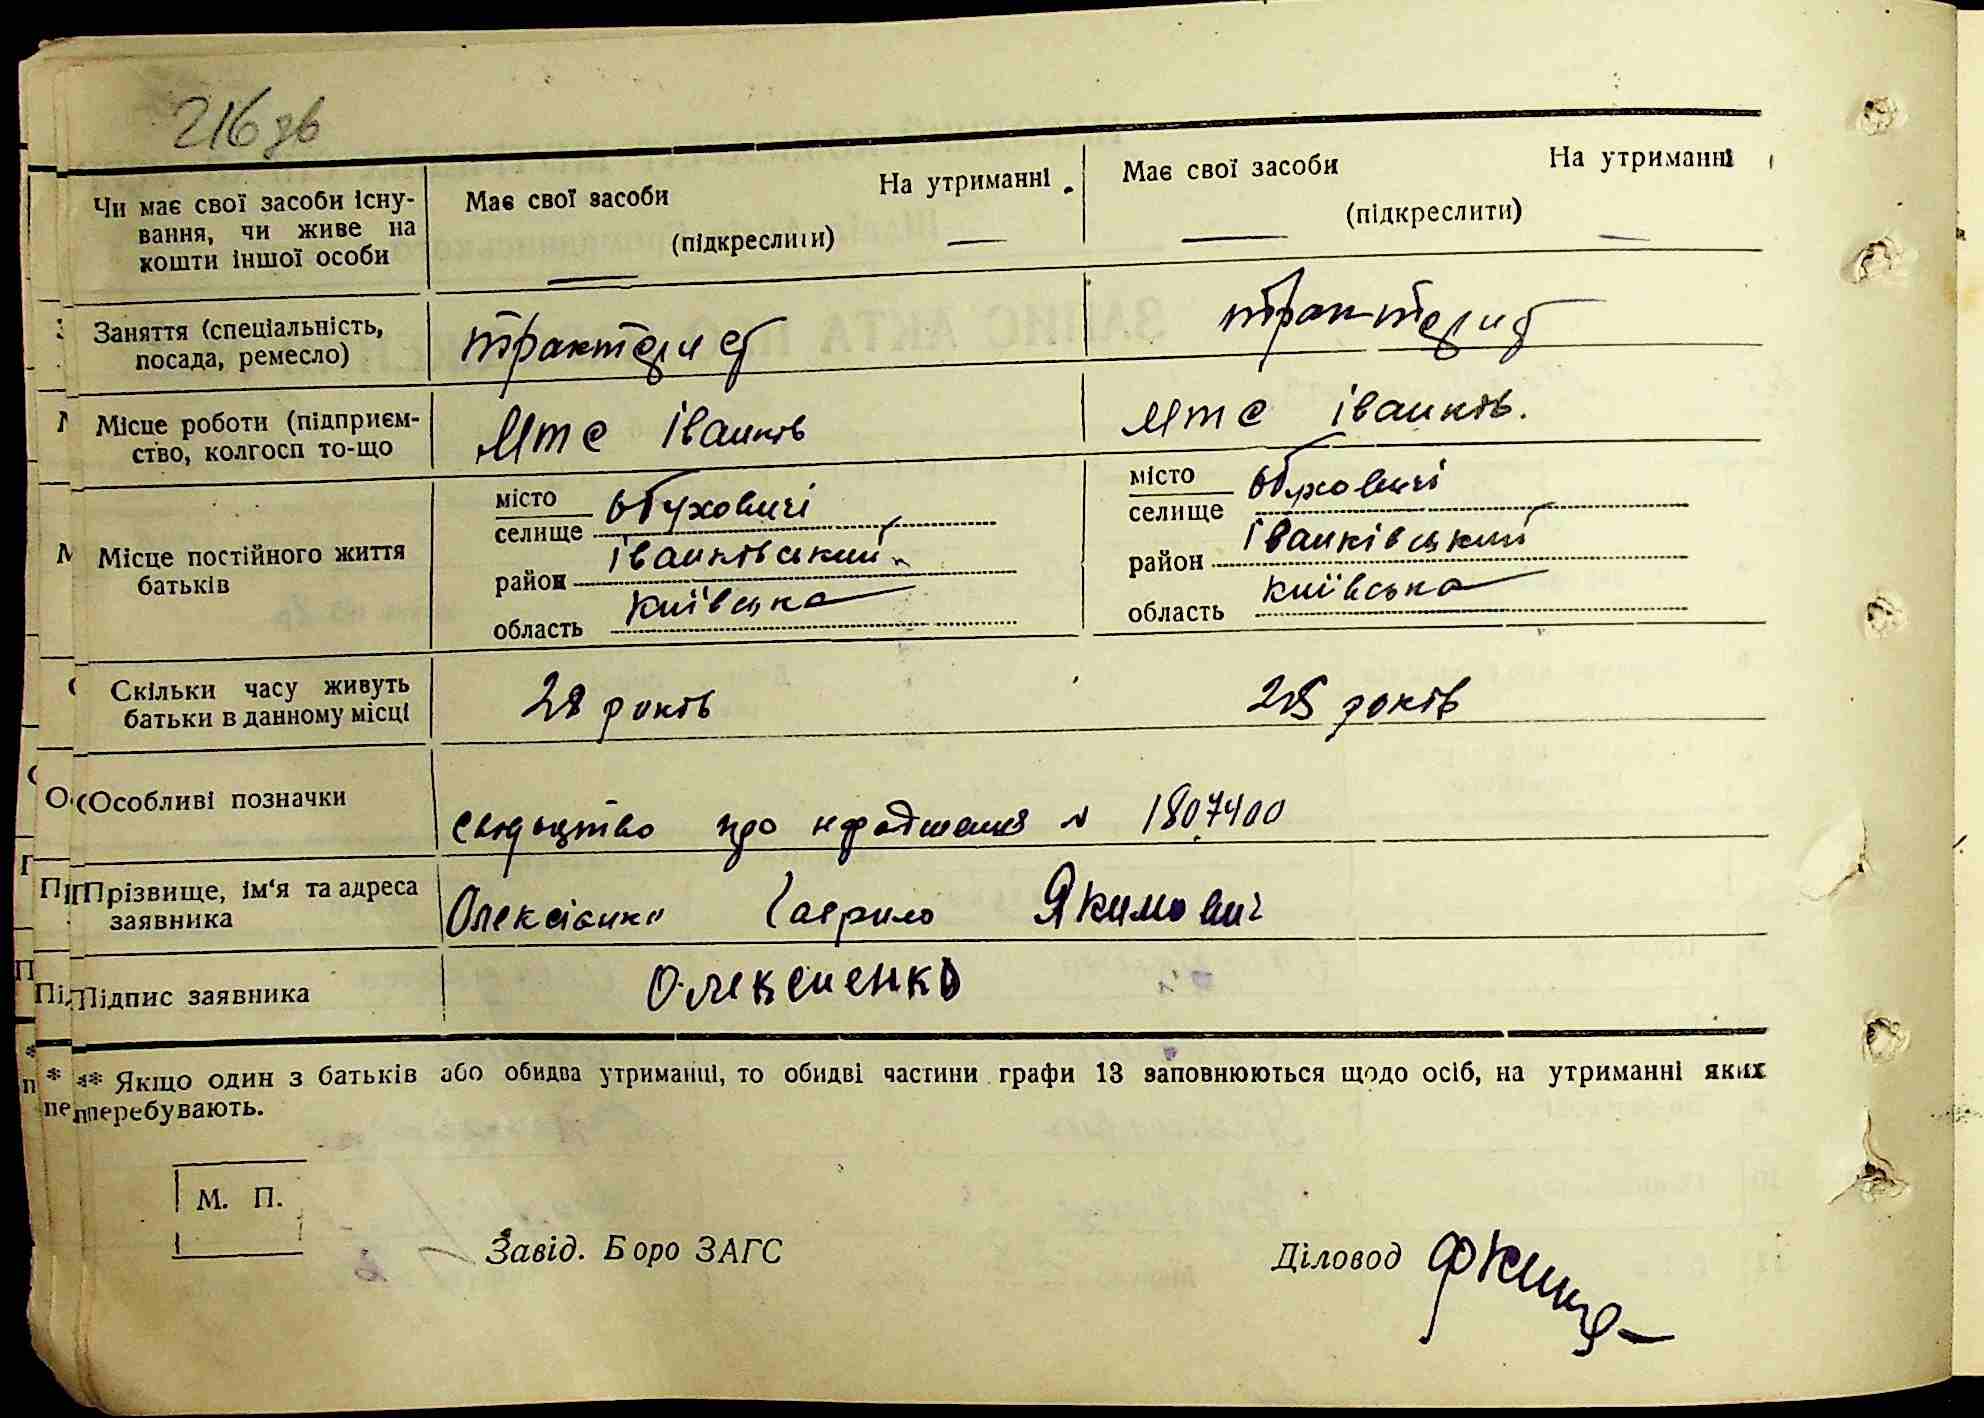 216 зв
Чи має свої засоби існу-
вання, чи живе на
кошти іншої особи
Має свої засоби На утриманні
(підкреслити)
Має свої засоби На утриманні
(підкреслити)
Заняття (спеціальність,
посада, ремесло)
тракторист
тракторист
Місце роботи (підприєм-
ство, колгосп то-що
МТС Іванків
МТС Іванків.
Місце постійного життя
батьків
місто
селище Обуховичі
район Іванківський
область Київська
місто
селище Обуховичі
район Іванківський
область Київська
Скільки часу живуть
батьки в данному місці
28 років
28 років
Особливі позначки
свидоцтво про народження № 1807400
Прізвище, ім'я та адреса
заявника
Олексієнко Гаврило Якимович
Підпис заявника
Олексиенко
** Якщо один з батьків або обидва утриманці, то обидві частини графи 13 заповнюються щодо осіб, на утриманні яких
перебувають.
М. П.
Завід. Боро ЗАГС
Діловод